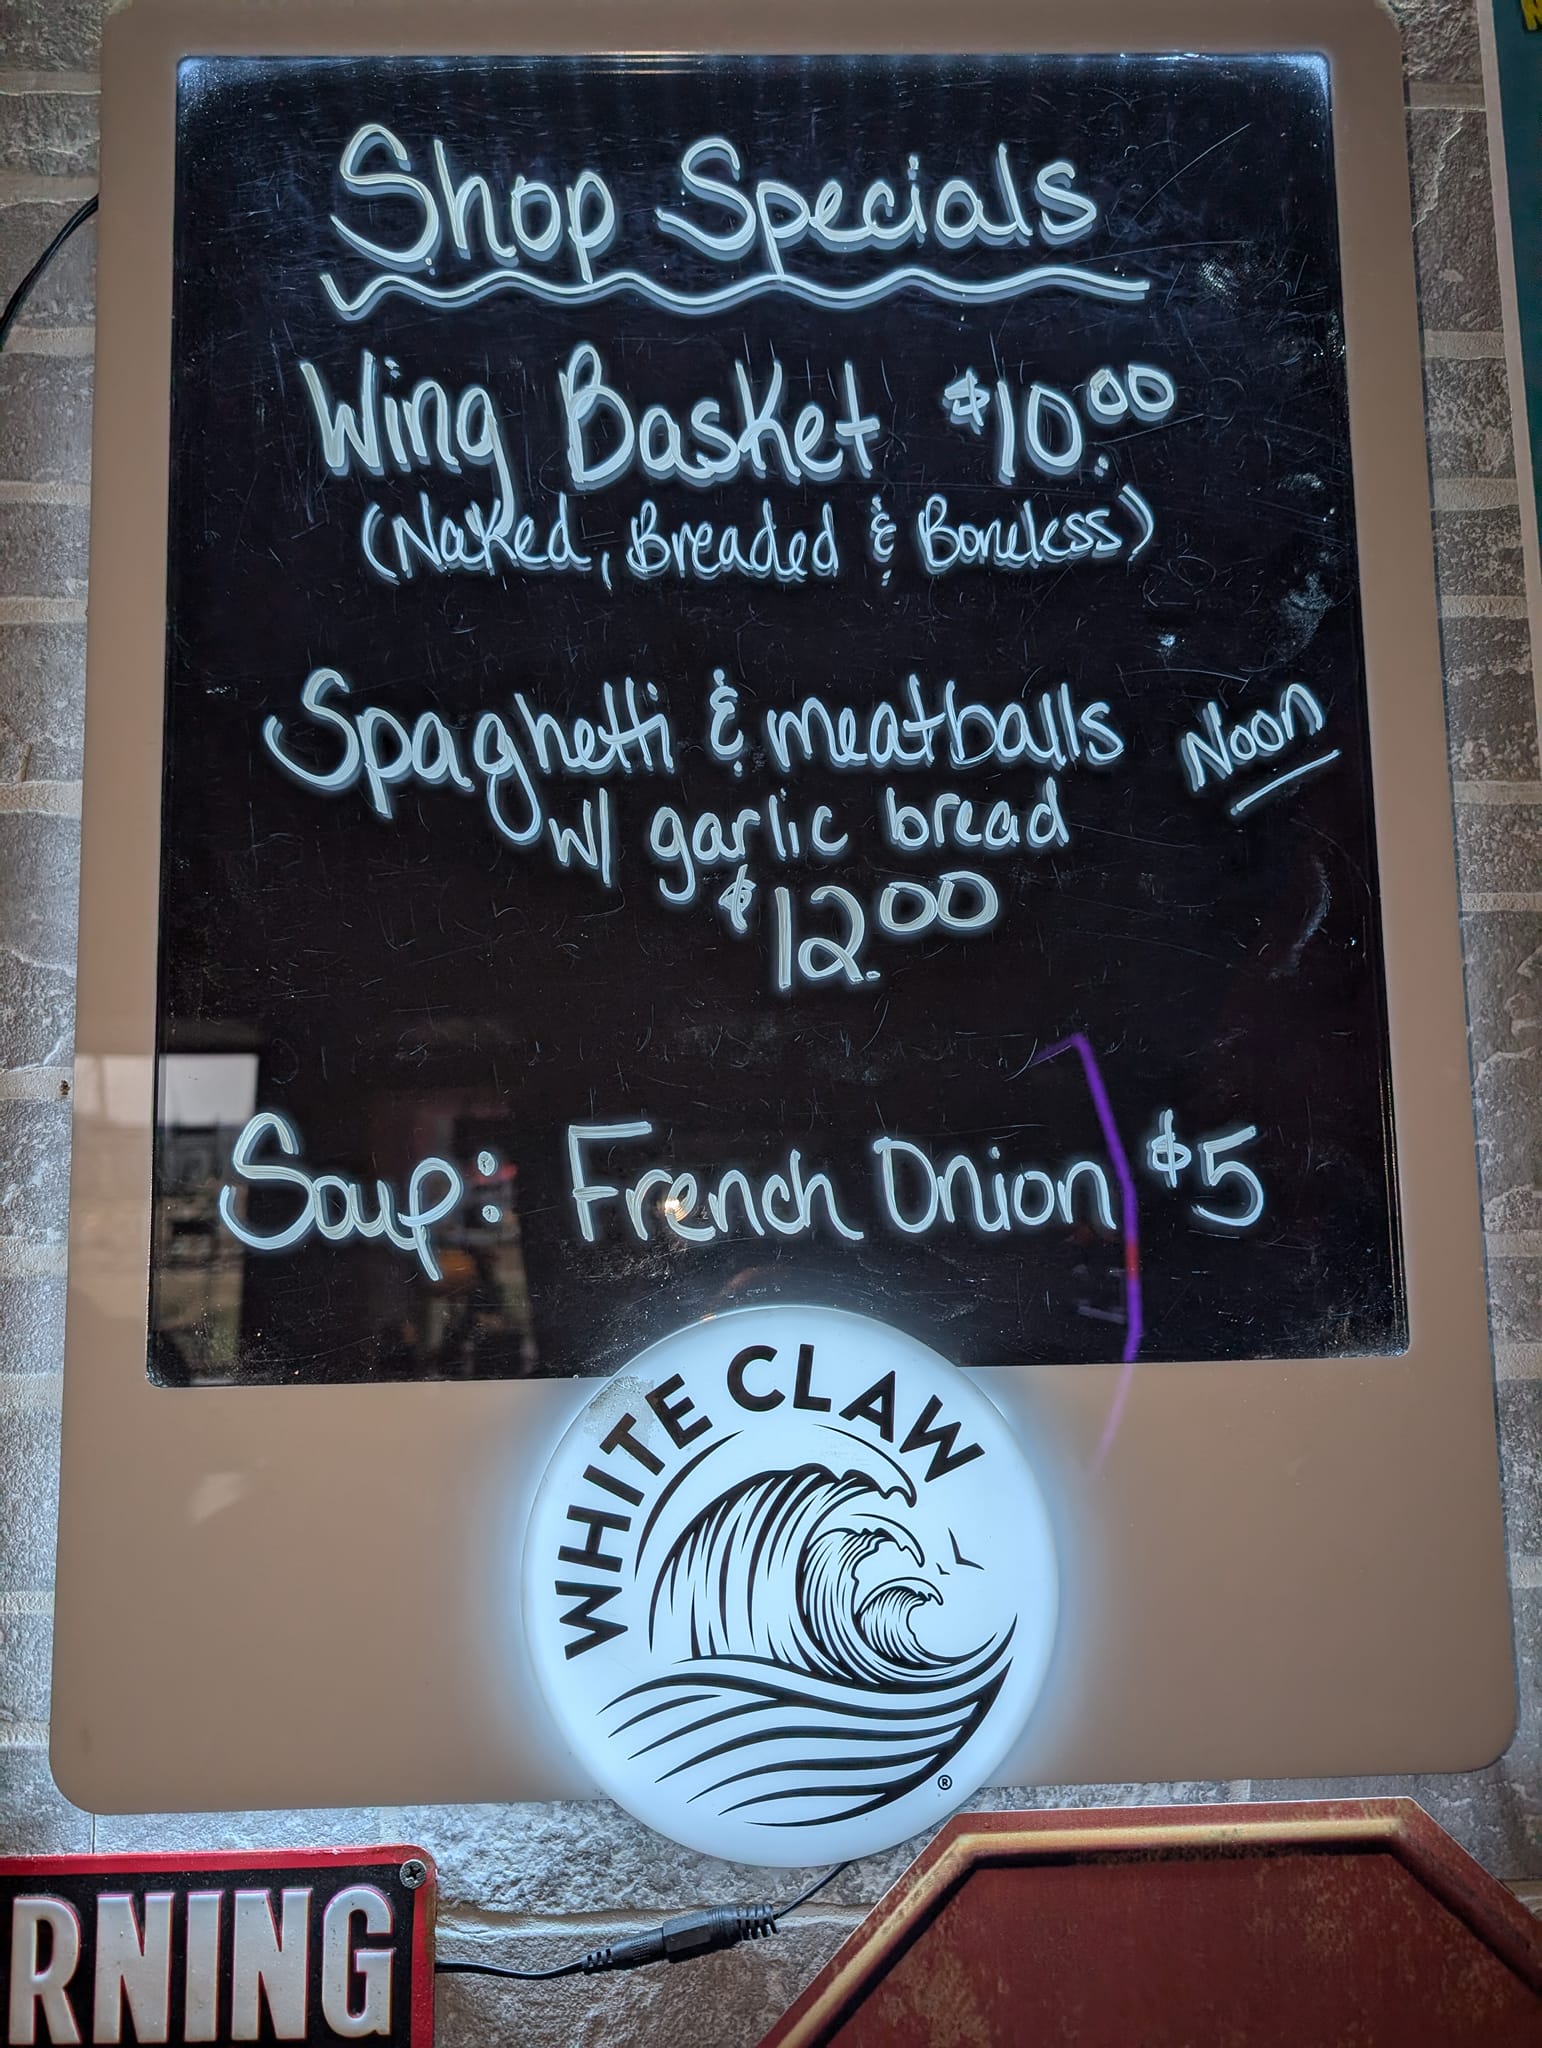 Shop Specials
Wing Basket $10.00
(Naked, Breaded & Boneless)
Spaghetti & meatballs Noon
w/ garlic bread
$12.00
Soup: French Onion $5
WHITE CLAW
®
RNING